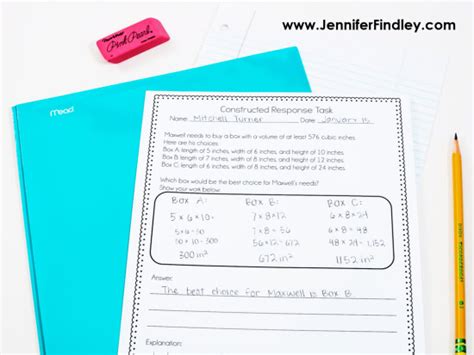 www.JenniferFindley.com
Pink Pearl
Mead
Constructed Response Task
Name: Mitchell Turner Date: January 15
Maxwell needs to buy a box with a volume of at least 576 cubic inches.
Here are his choices:
Box A: length of 5 inches, width of 6 inches, and height of 10 inches
Box B: length of 7 inches, width of 8 inches, and height of 12 inches
Box C: length of 6 inches, width of 8 inches, and height of 24 inches
Which box would be the best choice for Maxwell's needs?
Show your work below.
BOX A: BOX B: BOX C:
5 x 6 x 10= 7 x 8 x 12 6 x 8 x 24
5 x 6 = 30 7 x 8 = 56 6 x 8 = 48
30 x 10 = 300 56 x 12 = 672 48 x 24 = 1,152
300 in³ 672 in³ 1152 in³
Answer:
The best choice for Maxwell is Box B
Explanation: